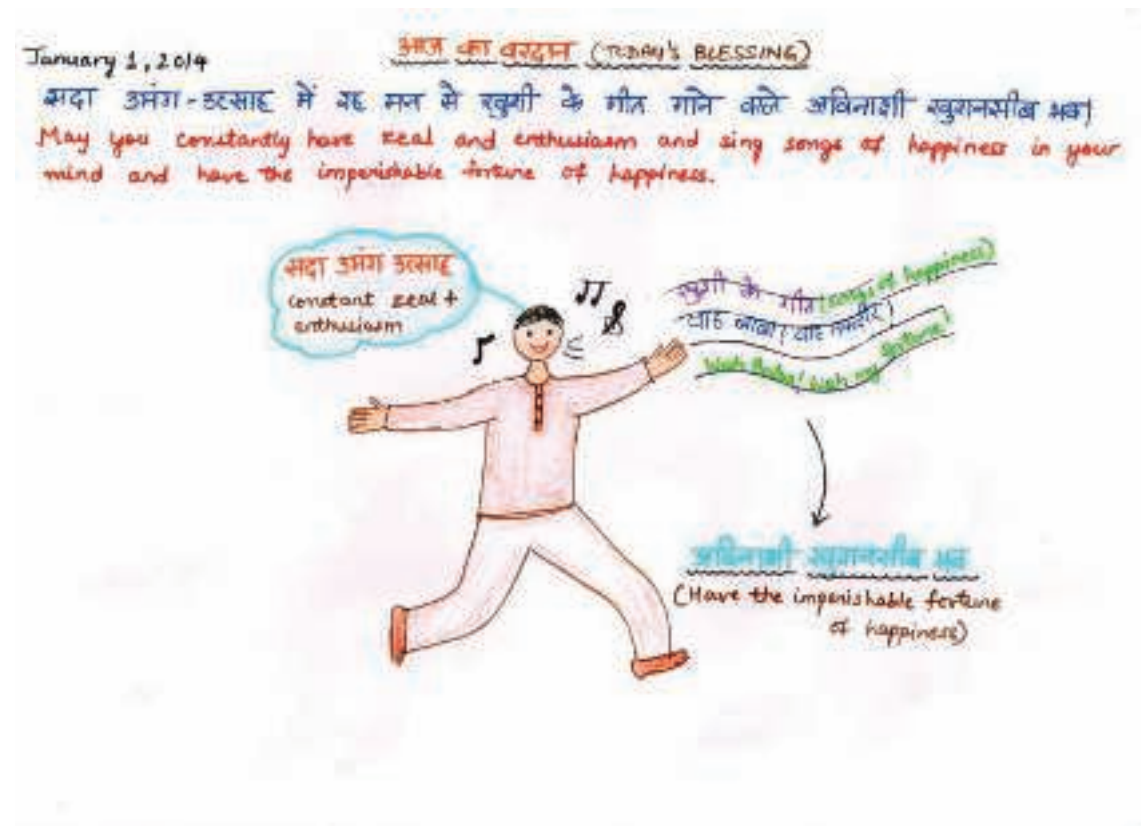 January 1, 2014
आज का वरदान (TODAY'S BLESSING)
सदा उमंग-उत्साह में रह मन से खुशी के गीत गाने वाले अविनाशी खुशनसीब भव।
May you constantly have zeal and enthusiasm and sing songs of happiness in your
mind and have the imperishable fortune of happiness.
सदा उमंग उत्साह
constant zeal +
enthusiasm
खुशी के गीत (songs of happiness)
वाह बाबा! वाह तकदीर!
Wah Baba! Wah my fortune!
अविनाशी खुशनसीब भव
(Have the imperishable fortune
of happiness)